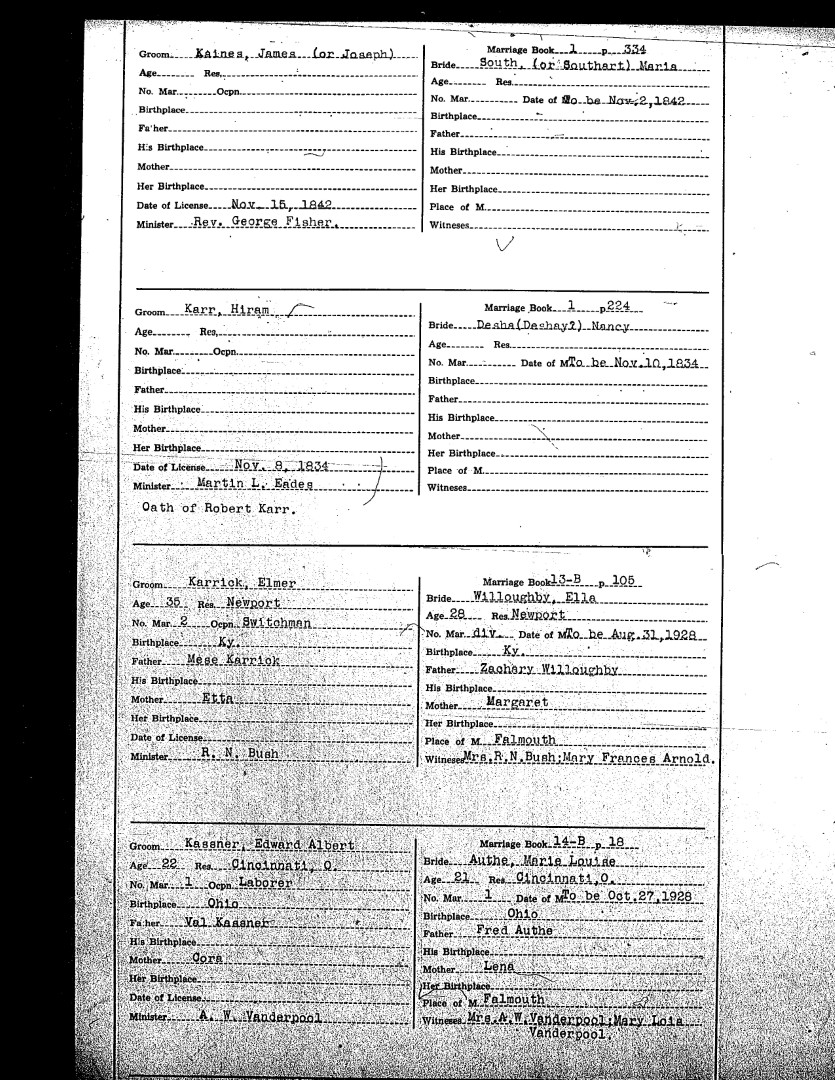 Groom Kaines, James (or Joseph)
Age Res.
No. Mar. Ocpn.
Birthplace
Father
His Birthplace
Mother
Her Birthplace
Date of License Nov. 15, 1842
Minister Rev. George Fisher.
Marriage Book 1 p. 334
Bride South, (or Southart) Maria
Age Res.
No. Mar. Date of M To be Nov. 2, 1842
Birthplace
Father
His Birthplace
Mother
Her Birthplace
Place of M.
Witnesses
Groom Karr, Hiram
Age Res.
No. Mar. Ocpn.
Birthplace
Father
His Birthplace
Mother
Her Birthplace
Date of License Nov. 8, 1834
Minister Martin L. Eades
Oath of Robert Karr.
Marriage Book 1 p. 224
Bride Desha(Deshay?) Nancy
Age Res.
No. Mar. Date of M To be Nov.10,1834
Birthplace
Father
His Birthplace
Mother
Her Birthplace
Place of M.
Witnesses
Groom Karrick, Elmer
Age 35 Res. Newport
No. Mar. 2 Ocpn. Switchman
Birthplace Ky.
Father Mese Karrick
His Birthplace
Mother Etta
Her Birthplace
Date of License
Minister R. N. Bush
Marriage Book 13-B p. 105
Bride Willoughby, Ella
Age 28 Res. Newport
No. Mar. div. Date of M To be Aug.31,1928
Birthplace Ky.
Father Zachary Willoughby
His Birthplace
Mother Margaret
Her Birthplace
Place of M. Falmouth
Witnesses Mrs.R.N.Bush;Mary Frances Arnold.
Groom Kassner, Edward Albert
Age 22 Res. Cincinnati, O.
No. Mar. 1 Ocpn. Laborer
Birthplace Ohio
Father Val Kassner
His Birthplace
Mother Cora
Her Birthplace
Date of License
Minister A. W. Vanderpool
Marriage Book 14-B p. 18
Bride Authe, Marie Louise
Age 21 Res. Cincinnati,O.
No. Mar. 1 Date of M To be Oct.27,1928
Birthplace Ohio
Father Fred Authe
His Birthplace
Mother Lena
Her Birthplace
Place of M. Falmouth
Witnesses Mrs.A.W.Vanderpool;Mary Lois
Vanderpool.